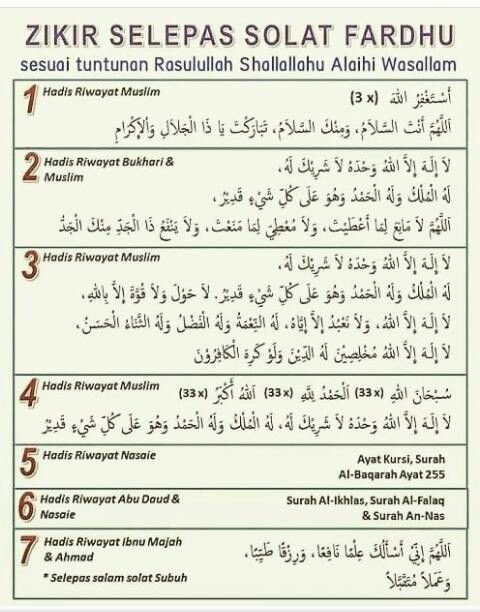 ZIKIR SELEPAS SOLAT FARDHU
sesuai tuntunan Rasulullah Shallallahu Alaihi Wasallam
1 Hadis Riwayat Muslim
أَسْتَغْفِرُ اللهَ (3 x)
اَللَّهُمَّ أَنْتَ السَّلاَمُ، وَمِنْكَ السَّلاَمُ، تَبَارَكْتَ يَا ذَا الْجَلاَلِ وَاْلإِكْرَامِ
2 Hadis Riwayat Bukhari &
Muslim
لاَ إِلَـهَ إِلاَّ اللهُ وَحْدَهُ لاَ شَرِيْكَ لَهُ،
لَهُ الْمُلْكُ وَلَهُ الْحَمْدُ وَهُوَ عَلَى كُلِّ شَيْءٍ قَدِيْرٌ،
اَللَّهُمَّ لاَ مَانِعَ لِمَا أَعْطَيْتَ، وَلاَ مُعْطِيَ لِمَا مَنَعْتَ، وَلاَ يَنْفَعُ ذَا الْجَدِّ مِنْكَ الْجَدُّ
3 Hadis Riwayat Muslim
لاَ إِلَـهَ إِلاَّ اللهُ وَحْدَهُ لاَ شَرِيْكَ لَهُ،
لَهُ الْمُلْكُ وَلَهُ الْحَمْدُ وَهُوَ عَلَى كُلِّ شَيْءٍ قَدِيْرٌ. لاَ حَوْلَ وَلاَ قُوَّةَ إِلاَّ بِاللهِ،
لاَ إِلَـهَ إِلاَّ اللهُ، وَلاَ نَعْبُدُ إِلاَّ إِيَّاهُ، لَهُ النِّعْمَةُ وَلَهُ الْفَضْلُ وَلَهُ الثَّنَاءُ الْحَسَنُ،
لاَ إِلَـهَ إِلاَّ اللهُ مُخْلِصِيْنَ لَهُ الدِّيْنَ وَلَوْ كَرِهَ الْكَافِرُوْنَ
4 Hadis Riwayat Muslim
سُبْحَانَ اللهِ (33 x) اَلْحَمْدُ لِلَّهِ (33 x) اَللهُ أَكْبَرُ (33 x)
لاَ إِلَـهَ إِلاَّ اللهُ وَحْدَهُ لاَ شَرِيْكَ لَهُ، لَهُ الْمُلْكُ وَلَهُ الْحَمْدُ وَهُوَ عَلَى كُلِّ شَيْءٍ قَدِيْرٌ
5 Hadis Riwayat Nasaie
Ayat Kursi, Surah
Al-Baqarah Ayat 255
6 Hadis Riwayat Abu Daud &
Nasaie
Surah Al-Ikhlas, Surah Al-Falaq
& Surah An-Nas
7 Hadis Riwayat Ibnu Majah
& Ahmad
* Selepas salam solat Subuh
اَللَّهُمَّ إِنِّيْ أَسْأَلُكَ عِلْمًا نَافِعًا، وَرِزْقًا طَيِّبًا،
وَعَمَلاً مُتَقَبَّلاً